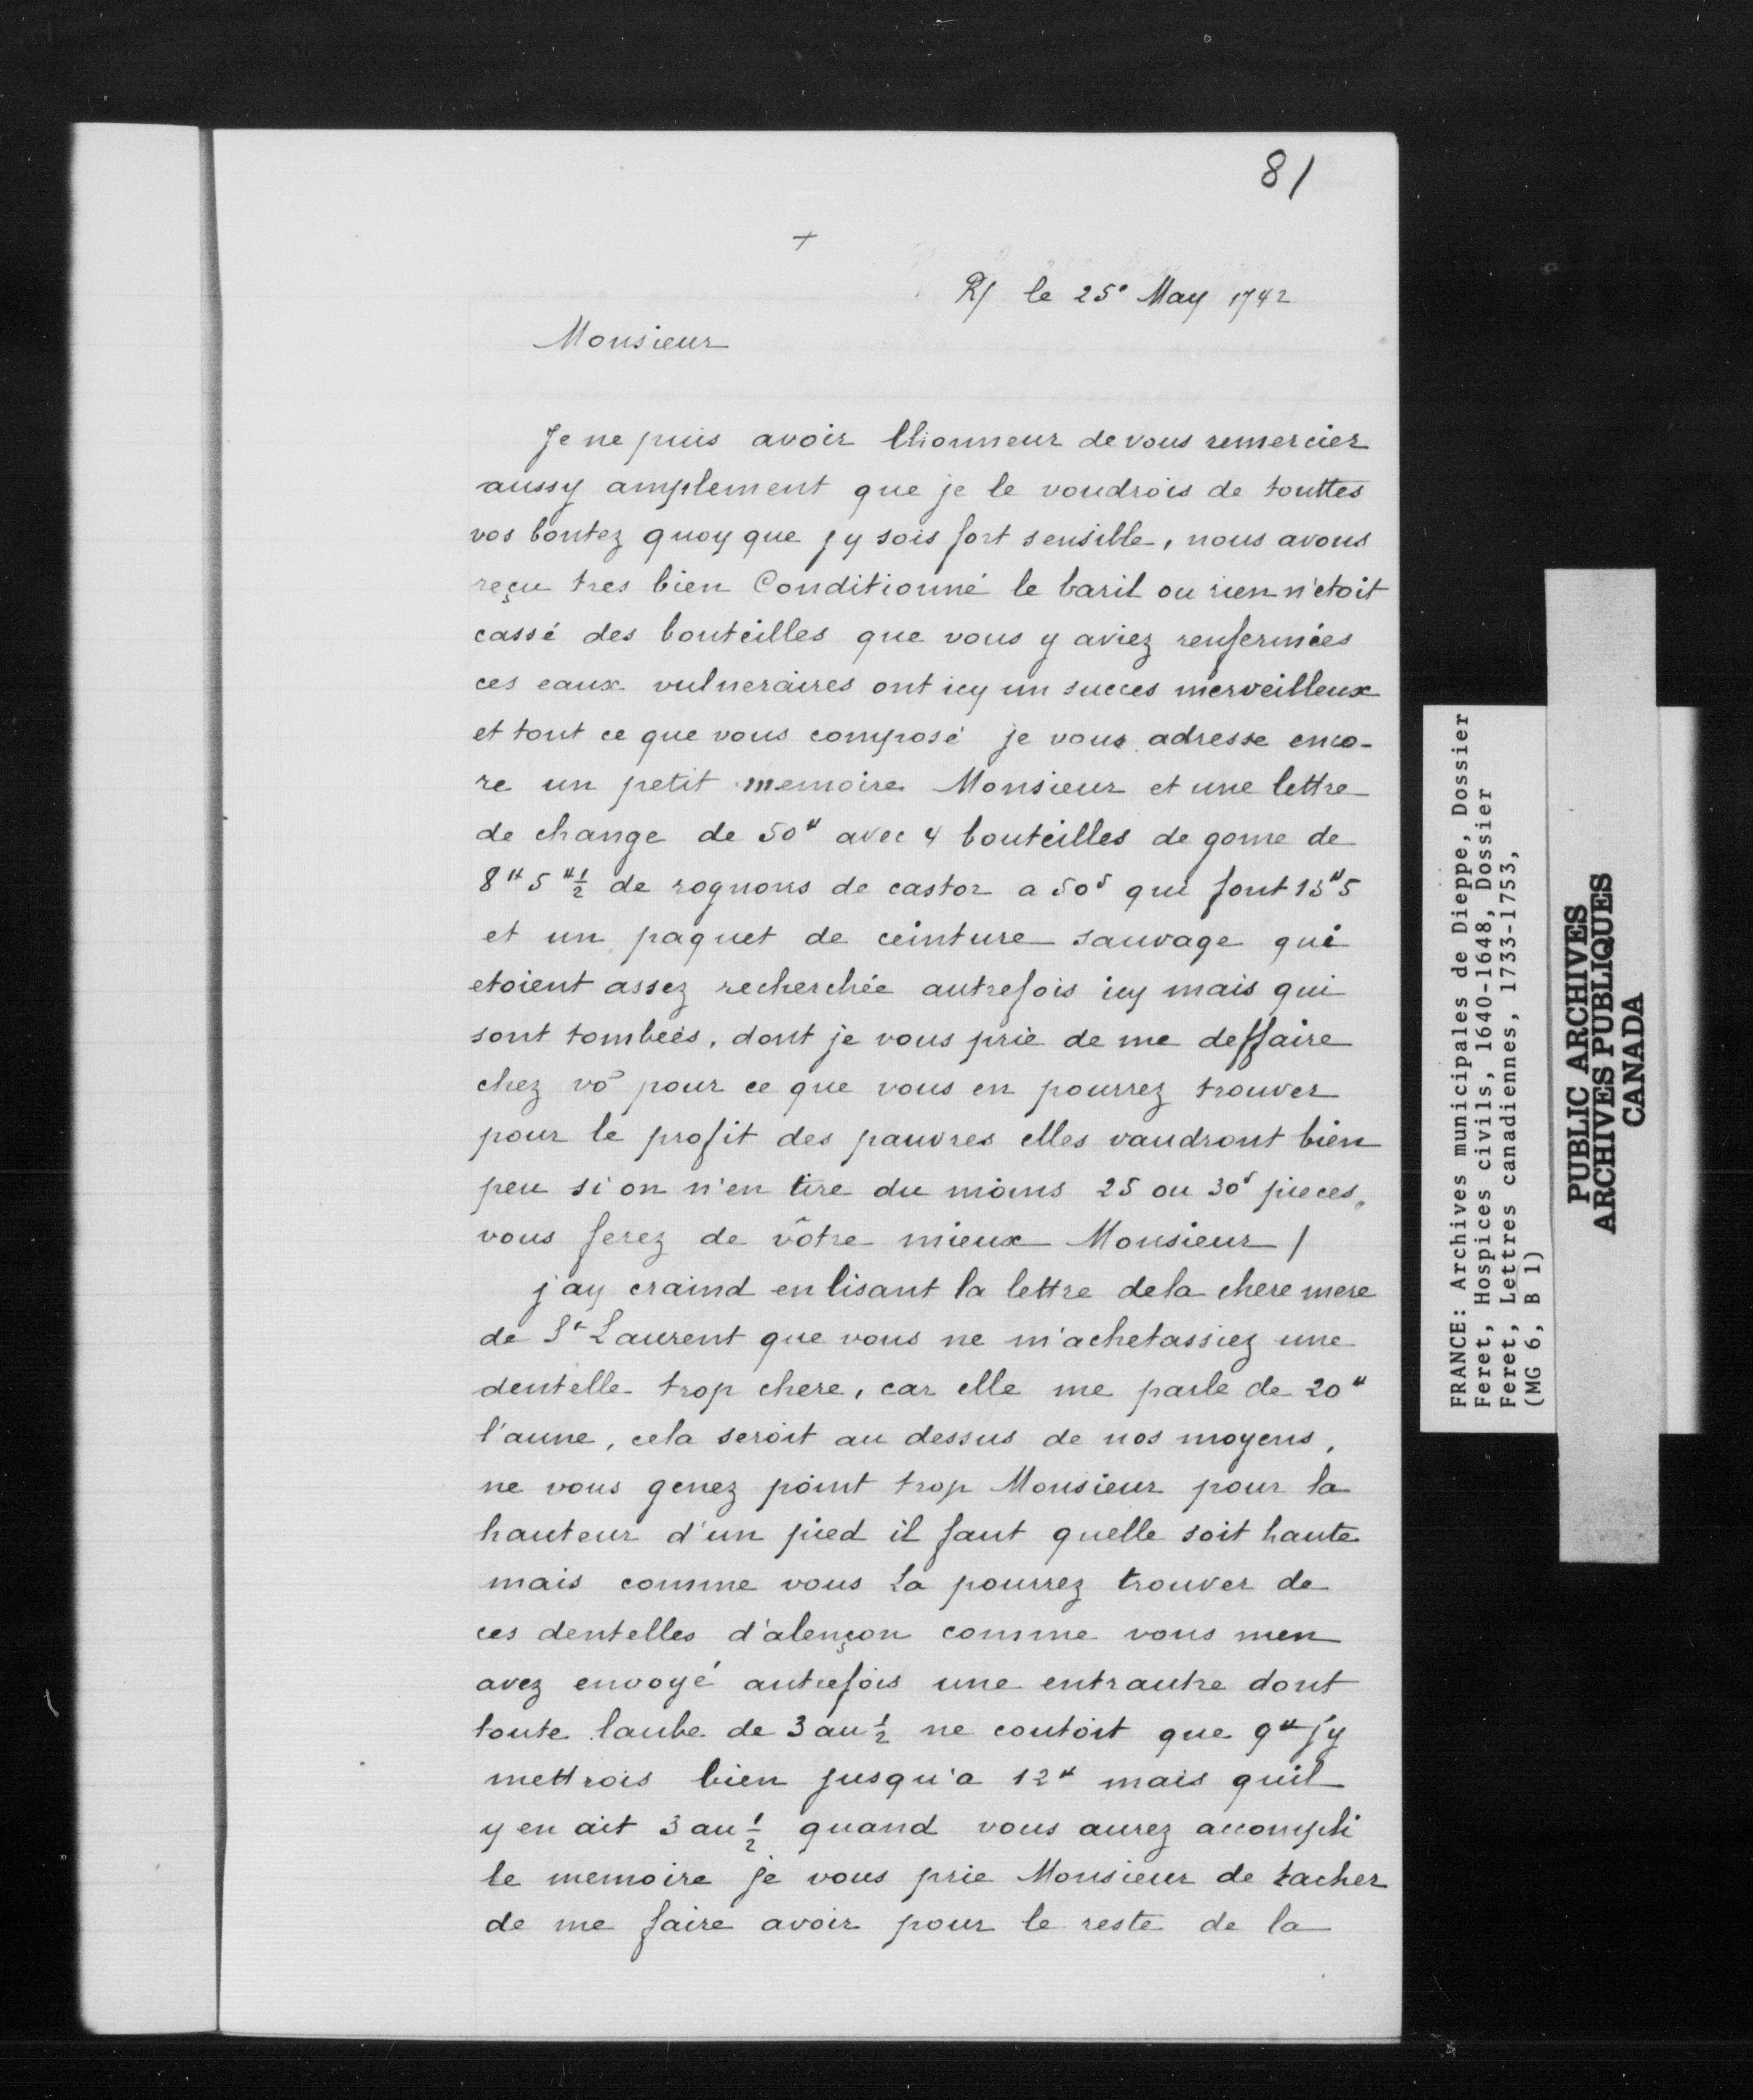 81
+
R/ le 25e May 1742
Monsieur
Je ne puis avoir lhonneur de vous remercier
aussy amplement que je le voudrois de touttes
vos bontez quoy que jy sois fort sensible, nous avons
reçu tres bien Conditionné le baril ou rien n'etoit
cassé des bouteilles que vous y aviez renfermées
ces eaux vulneraires ont icy un succes merveilleux
et tout ce que vous composé je vous adresse enco-
re un petit memoire Monsieur et une lettre
de change de 50# avec 4 bouteilles de gome de
8# 5 # 1/2 de rognons de castor a 50s qui font 13# 5
et un paquet de ceinture sauvage qui
etoient assez recherchée autrefois icy mais qui
sont tombeés, dont je vous prie de me deffaire
chez vō pour ce que vous en pourrez trouver
pour le profit des pauvres elles vaudront bien
peu si on n'en tire du moins 25 ou 30s pieces,
vous ferez de vôtre mieux Monsieur /
j'ay craind en lisant la lettre dela chere mere
de St Laurent que vous ne m'achetassiez une
dentelle trop chere, car elle me parle de 20#
l'aune, cela seroit au dessus de nos moyens,
ne vous genez point trop Monsieur pour la
hauteur d'un pied il faut quelle soit haute
mais comme vous la pourrez trouver de
ces dentelles d'alençon comme vous men
avez envoyé autrefois une entrautre dont
toute laube de 3 au 1/2 ne coutoit que 9# j'y
mettrois bien jusqu'a 12# mais quil
y en ait 3 au 1/2 quand vous aurez accompli
le memoire je vous prie Monsieur de tacher
de me faire avoir pour le reste de la
FRANCE: Archives municipales de Dieppe, Dossier
Feret, Hospices civils, 1640-1648, Dossier
Feret, Lettres canadiennes, 1733-1753,
(MG 6, B 1)
PUBLIC ARCHIVES
ARCHIVES PUBLIQUES
CANADA